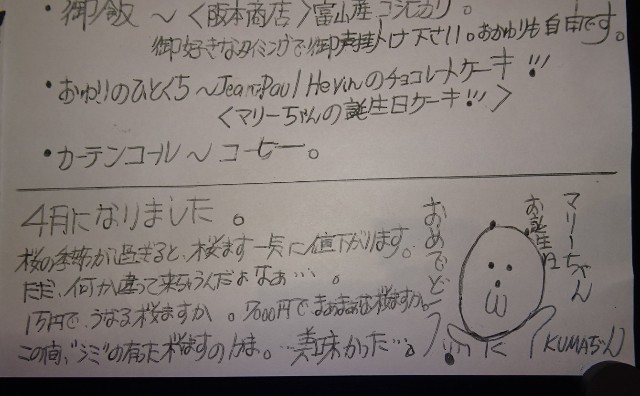 ・御飯 〜〈阪本商店〉富山産コシヒカリ。
御好きなタイミングで御声掛け下さい。おかわりも自由です。
・おわりのひとくち〜Jean-Paul Hevinのチョコレートケーキ!!!
〈マリーちゃんの誕生日ケーキ!!!〉
・カーテンコール〜コーヒー。
4月になりました。
桜の季節が過ぎると、桜ます一気に値下がります。
ただ、何か違って来ちゃうんだよなぁ…。
1万円で、うなる桜ますか。7000円でまあまあな桜ますか。
この間、"シミ"の有った桜ますの
美味かった
マリーちゃん
お誕生日
おめでとう
KUMAちゃん